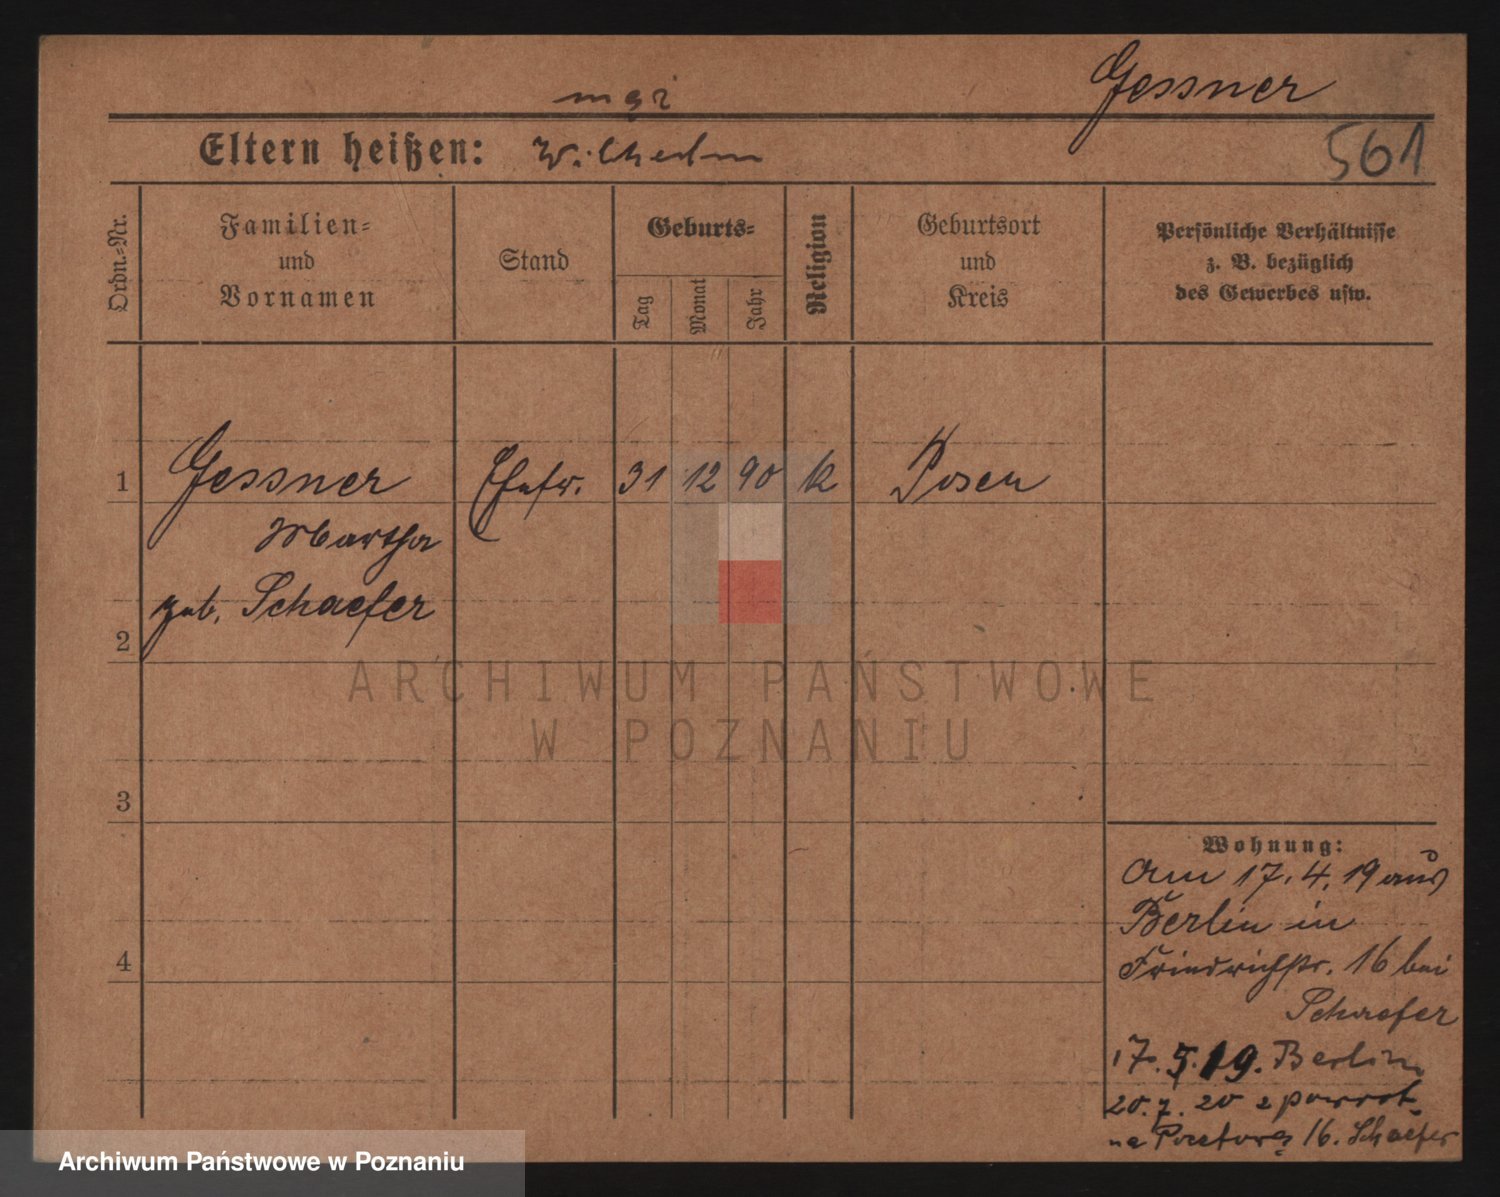 Gessner
mąż
Eltern heißen: Wilhelm
561
Ordn.-Nr.
Familien-
und
Vornamen
Stand
Geburts-
Tag
Monat
Jahr
Religion
Geburtsort
und
Kreis
Persönliche Verhältnisse
z. B. bezüglich
des Gewerbes usw.
1 Gessner Ehefr. 31 12 90 k Posen
Martha
geb. Schaefer
2
3
4
Wohnung:
Am 17. 4. 19 aus
Berlin in
Friedrichstr. 16 bei
Schaefer
17. 5. 19. Berlin
20. 7. 20 z powrot.
na Pocztową 16. Schaefer
ARCHIWUM PAŃSTWOWE
W POZNANIU
Archiwum Państwowe w Poznaniu